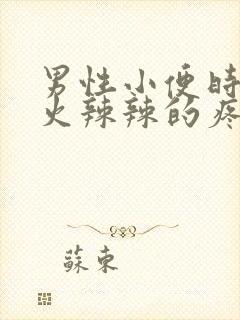 男性小便时
火辣辣的疼
蘇東